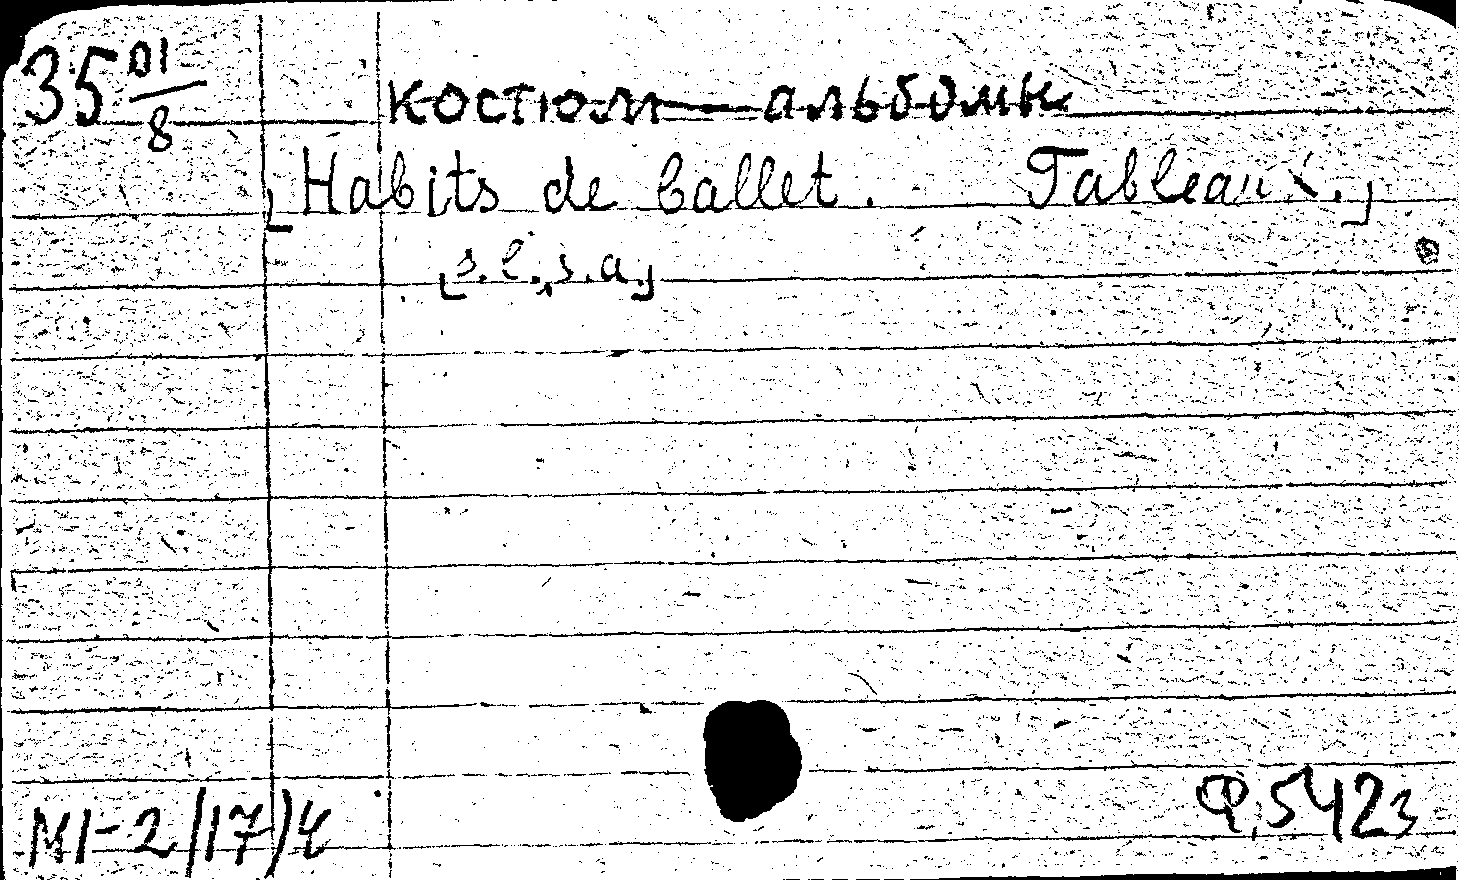 35 01/8
костюм — альбомы
[Habits de ballet. Tableaux.]
[s.l., s.a.]
MI-2/17/4 Ф, 5423